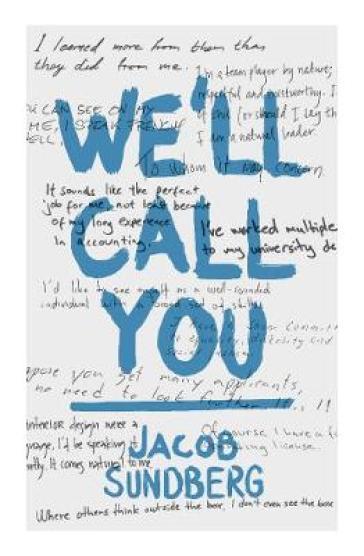 I learned more from them than
they did from me.
I'm a team player by nature;
helpful and trustworthy. I
CAN SEE ON MY
ME, I SPEAK FRENCH
of one (or should I say th
I am a natural leader.
WE'LL
To whom it may concern,
It sounds like the perfect
job for me, not least because
of my long experience
in accounting.
I've worked multiple
to my university de
CALL
I'd like to see myself as a well-rounded
individual with a broad set of skills
YOU
I have a
to equality, diversity and
social
you get many applicants,
no need to look further
interior design were a
I'd be speaking it
It comes natural to me
Of course I have a
license.
JACOB
SUNDBERG
Where others think outside the box, I don't even see the box